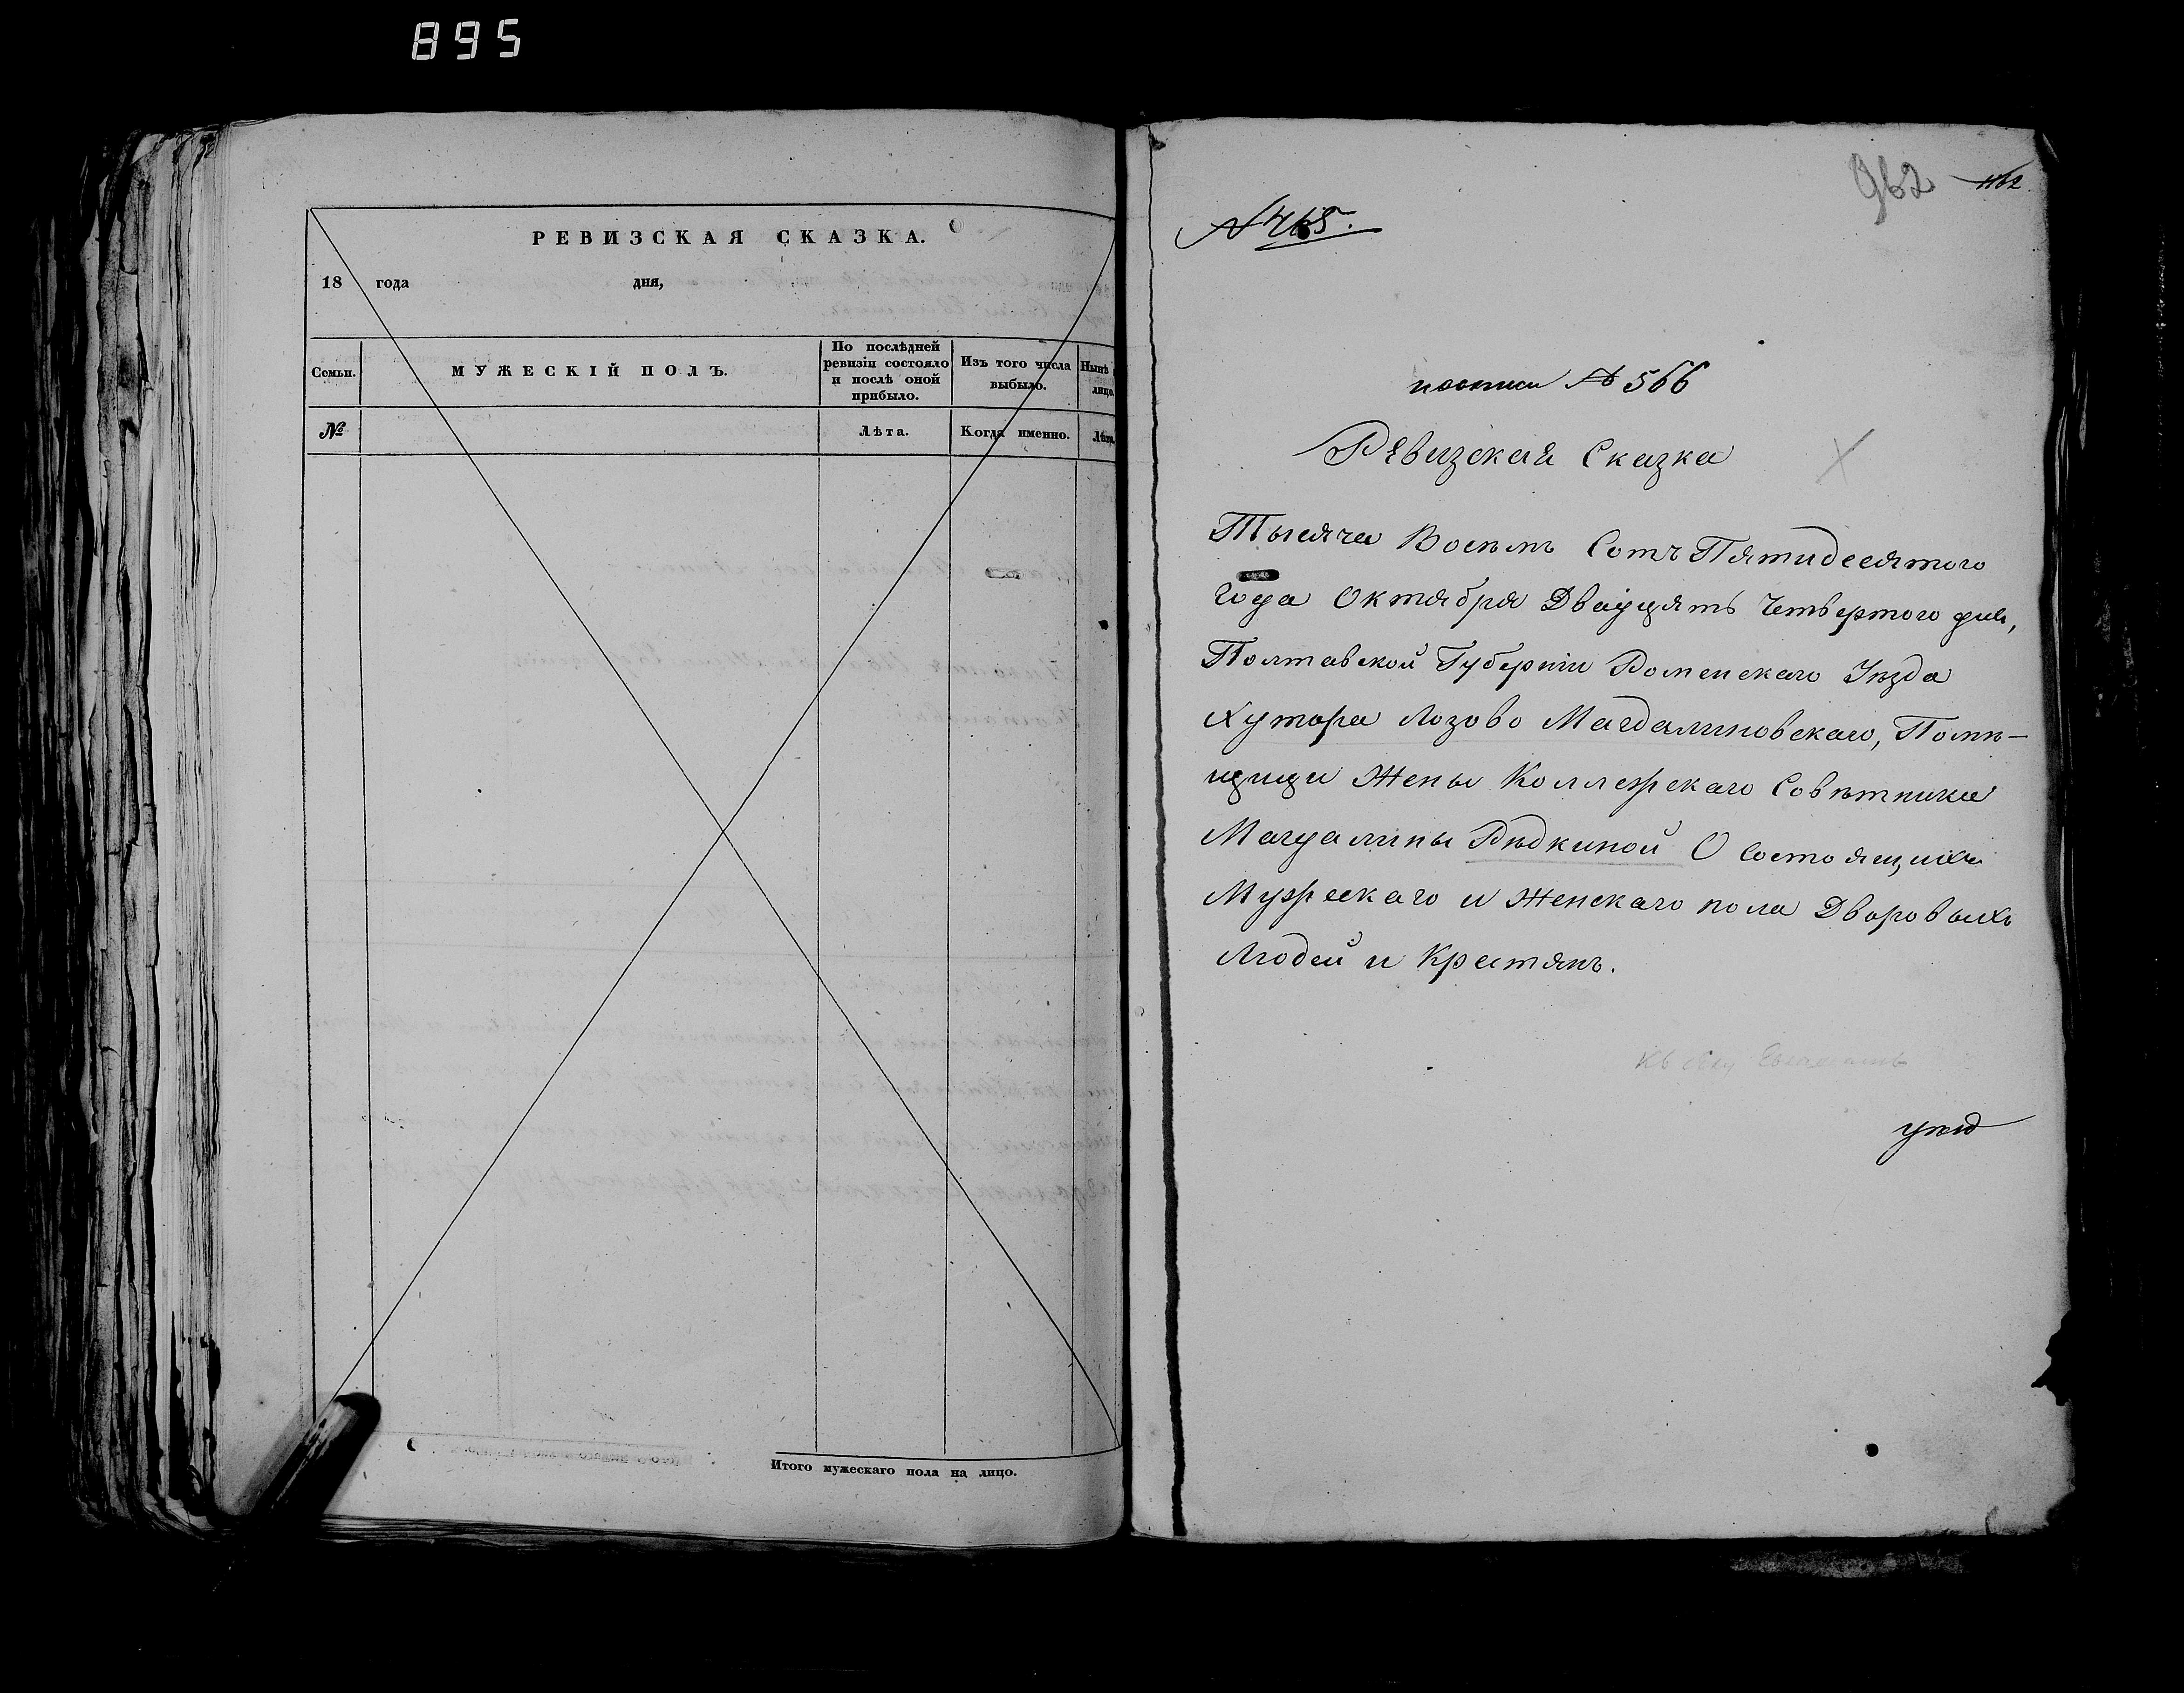 895
РЕВИЗСКАЯ СКАЗКА.
18 года дня,
Семьи.
МУЖЕСКІЙ ПОЛЪ.
По послѣдней ревизіи состояло и послѣ оной прибыло.
Изъ того числа выбыло.
Нынѣ
лицо.
№
Лѣта.
Когда именно.
Лѣта
Итого мужескаго пола на лицо.
962
1162
№ 465.
по описи № 566
Ревизская Сказка
Тысяча Восемь Сотъ Пятидесятого
Года Октября Двадцять Четвертого дня,
Полтавской Губерніи Роменскаго Уѣзда
Хутора Лозово Магдалиновскаго, Помѣ-
щици Жены Коллежскаго Совѣтника
Магдалины Рѣдкиной О состоящихъ
Мужескаго и Женскаго пола Дворовыхъ
Людей и Крестянъ.